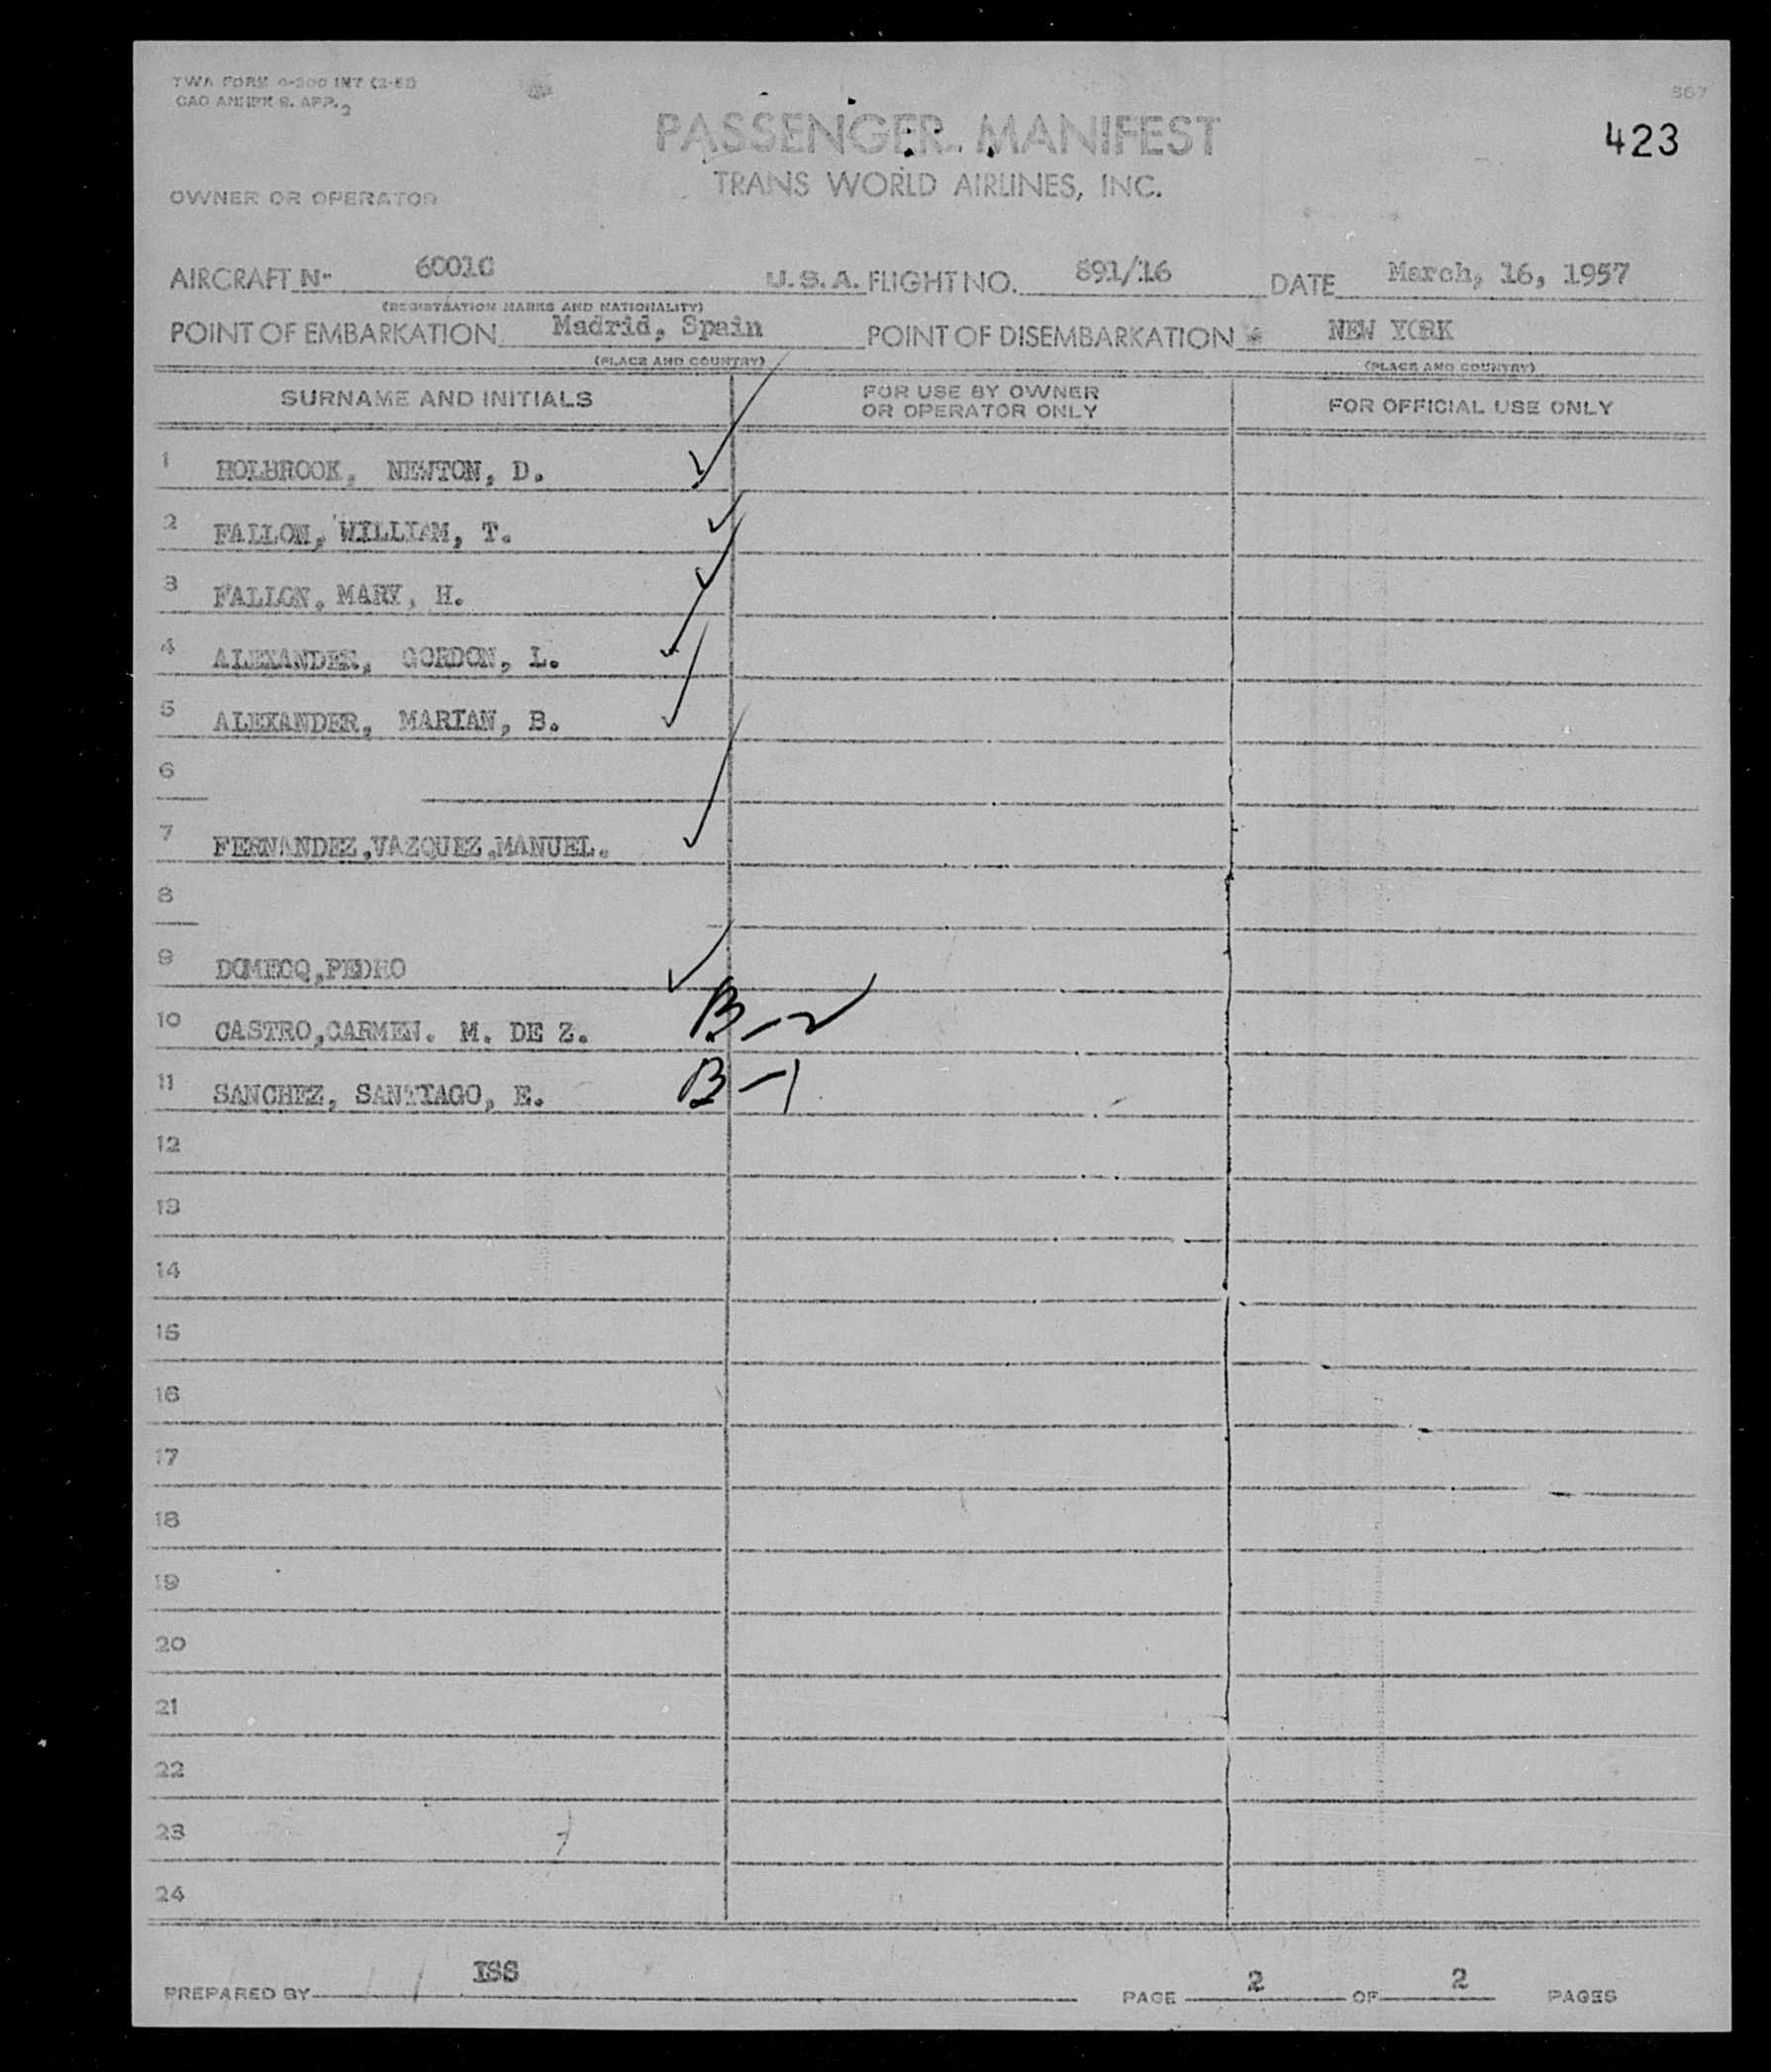 TWA FORM
423
PASSENGER MANIFEST
TRANS WORLD AIRLINES, INC.
OWNER OR OPERATOR
AIRCRAFT Nº 6001C U.S.A. FLIGHT NO. 891/16 DATE March, 16, 1957
(REGISTRATION MARKS AND NATIONALITY)
POINT OF EMBARKATION Madrid, Spain POINT OF DISEMBARKATION NEW YORK
(PLACE AND COUNTRY) (PLACE AND COUNTRY)
SURNAME AND INITIALS FOR USE BY OWNER OR OPERATOR ONLY FOR OFFICIAL USE ONLY
1 HOLBROOK, NEWTON, D.
2 FALLON, WILLIAM, T.
3 FALLON, MARY, H.
4 ALEXANDER, GORDON, L.
5 ALEXANDER, MARIAN, B.
6
7 FERNANDEZ,VAZQUEZ,MANUEL.
8
9 DOMECQ,PEDRO
10 CASTRO,CARMEN. M. DE Z. B-2
11 SANCHEZ, SANTIAGO, E. B-1
12
13
14
15
16
17
18
19
20
21
22
23
24
PREPARED BY ISS PAGE 2 OF 2 PAGES